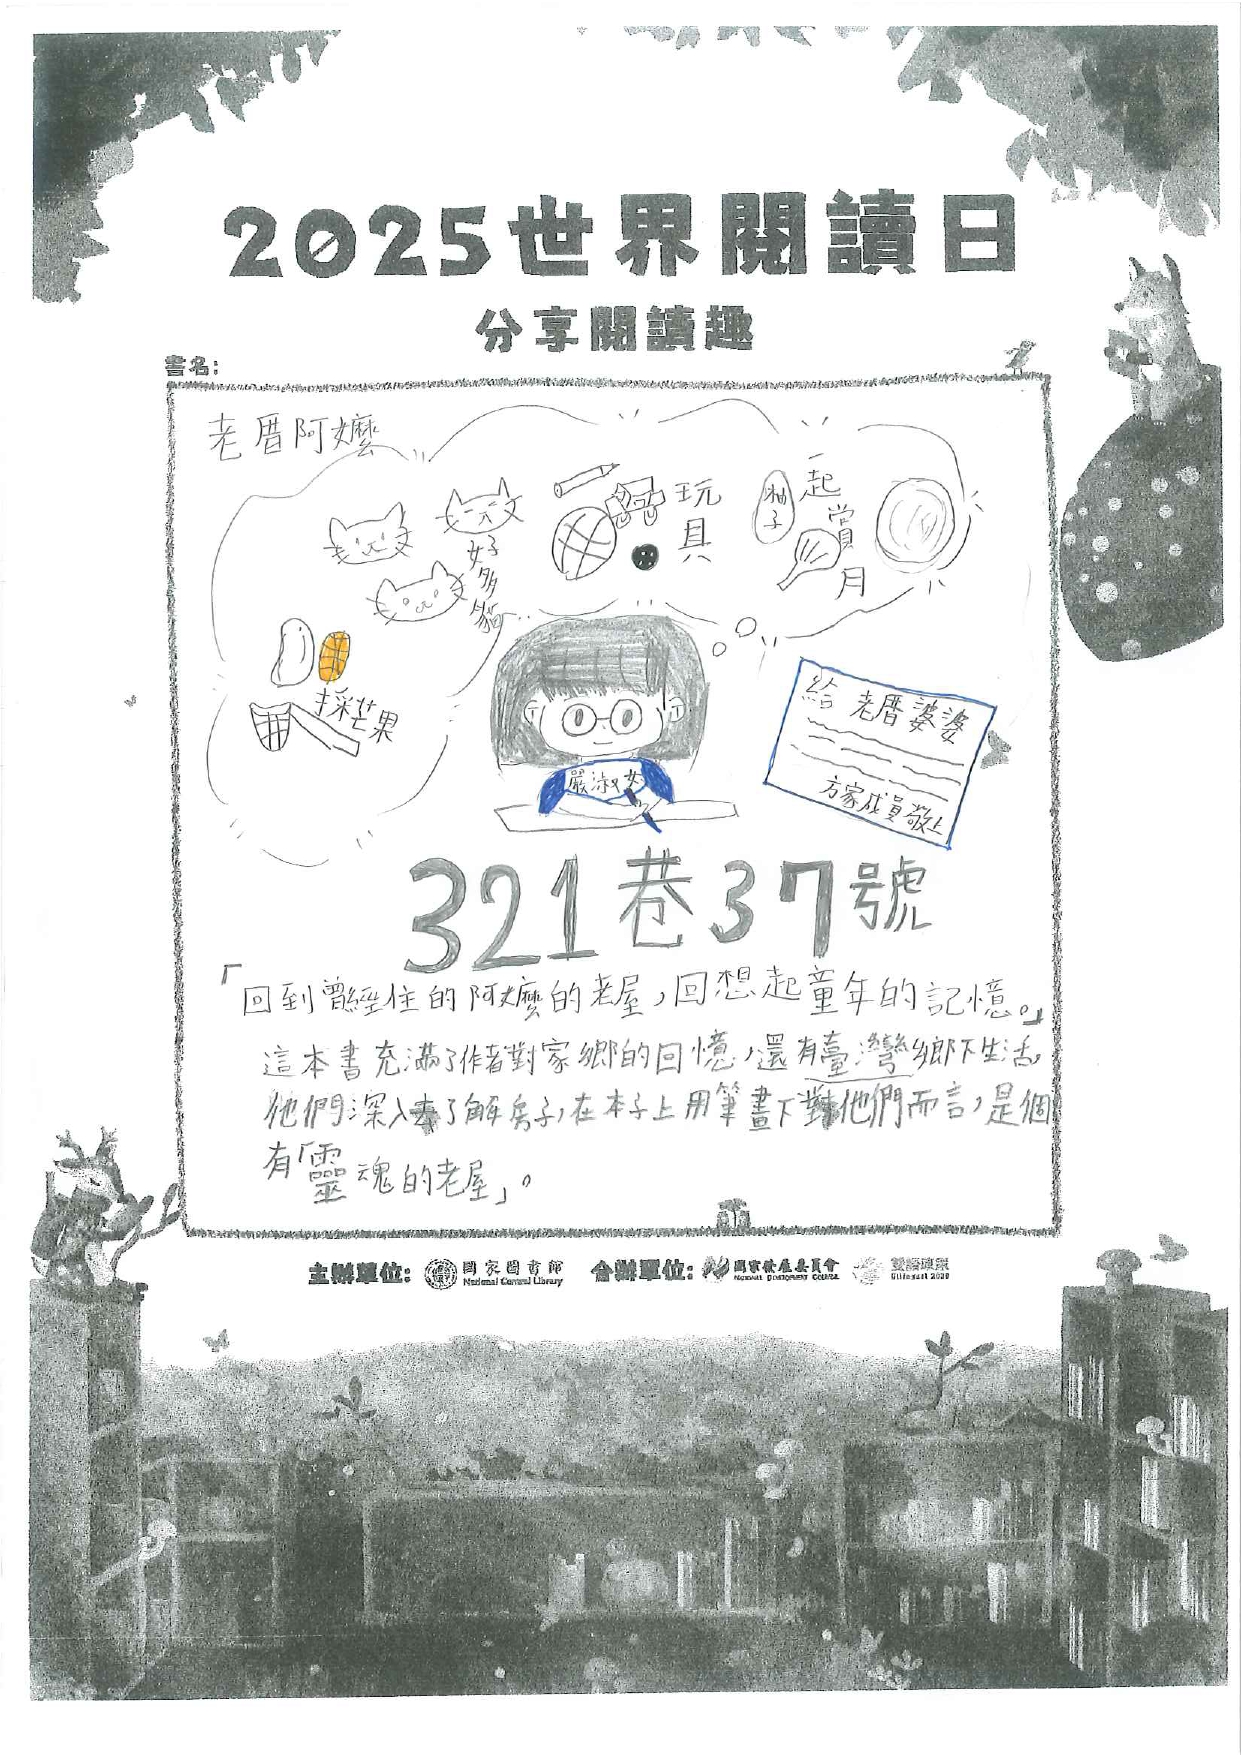 2025世界閱讀日
分享閱讀趣
書名:
老厝阿嬤
好多貓
玩具
柚子
一起賞月
採芒果
嚴淑女
給 老厝婆婆
方家成員敬上
321巷37號
「回到曾經住的阿嬤的老屋,回想起童年的記憶。」
這本書充滿了作者對家鄉的回憶,還有臺灣鄉下生活,
他們深入去了解房子,在本子上用筆畫下對他們而言,是個
有「靈魂的老屋」。
主辦單位: 國家圖書館 National Central Library 合辦單位: 國家發展委員會 NATIONAL DEVELOPMENT COUNCIL 雙語政策 Bilingual 2030